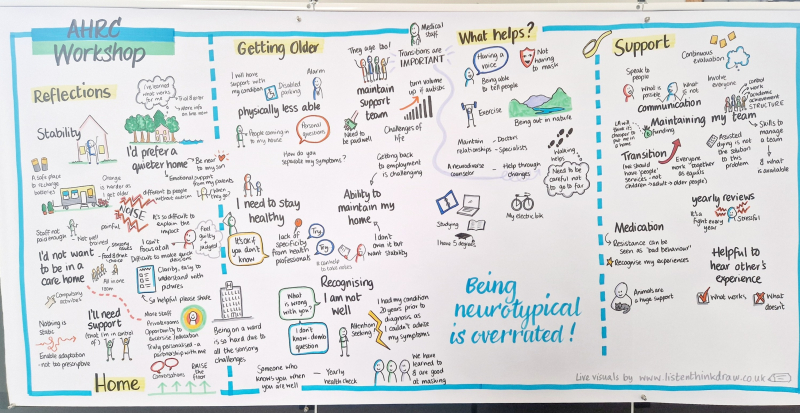 AHRC
Workshop
Reflections
I've learned
what works
for me
Trial & error
Stability
I'd prefer a
quieter home
Be near
to my son
Emotional support
from my parents
A safe place
to recharge
batteries
Change
is harder as
I get older
different to people
without autism
NOISE
It's so difficult to
explain the
impact
painful
Staff not
paid enough
Not well
trained
sensory
needs
food & drink
choice
All in one
room
I can't
focus at all
Difficult to make quick
decisions
Feel
guilty
&
judged
I'd not want
to be in a
care home
Compulsory
activities
Clarity, easy to
understand with
pictures
so helpful please share
Nothing is
static
Enable adaptation
- not too prescriptive
I'll need
support
(that I'm in control
of)
More staff
Private rooms
Opportunity to
exercise / relaxation
Truly personalised - a
partnership with me
Conversations
RAISE
the
floor
Home
Being on a ward
is so hard due to
all the sensory
challenges
Getting Older
I will home
support with
my condition
Disabled
parking
Alarm
physically less able
People coming in
to my home
Personal
questions
How do you
separate my symptoms?
I need to stay
healthy
It's OK if
you don't
know
lack of
specificity
from health
professionals
Try
Try
They age too!
maintain
support
team
Need to
be padwell
Transitions are
IMPORTANT
turn volume
up if autistic
Challenges of
life
Getting back
to employment
is challenging
Ability to
maintain my
home
I don't
own it but
want stability
Recognising
I am not
well
What is
wrong
with you?
I don't
know - dumb
question
Attention
Seeking
I had my condition
20 years prior to
diagnosis as
I couldn't advise
my symptoms
Someone who
knows you when
you are well
Yearly
health check
We have
learned to
& are good
at masking
Medical
staff
What helps?
Having a
voice
Being able
to tell people
Not
having
to mask
Exercise
Being out in nature
Maintain
relationships
- Doctors
- Specialists
A neurodiverse
counselor
Help through
changes
Walking
helps
Need to be
careful not
to go to far
Studying
I have 5 degrees
My electric bik
Being
neurotypical
is overrated!
Support
Continuous
evaluation
Speak to
people
What is
possible
What
not
Involve
everyone
communication
control
work
academic
achievement
STRUCTURE
Maintaining my team
funding
Skills to
manage
a team
& what
is available
Transition
Everyone
work "together"
as equals
Assisted
dying is not
the solution
to this
problem
yearly reviews
It's a
fight every
year
Stressful
Medication
Resistance can be
seen as 'bad behaviour'
Recognise my experiences
Helpful to
hear other's
experience
Animals are
a huge support
What works
What
doesn't
Live visuals by www.listenthinkdraw.co.uk